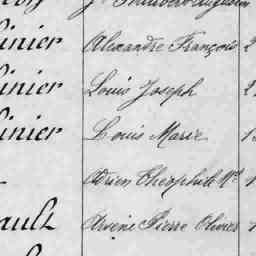 inier Alexandre François 2
inier Louis Joseph 2
inier Louis Marie 1
Adrien Théophile
ault Arsène Pierre Olivier 1